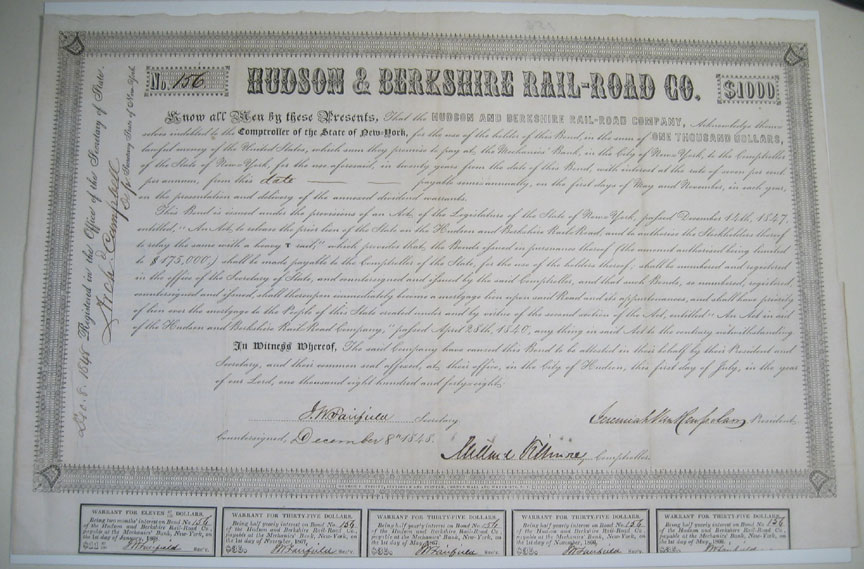 No. 156
HUDSON & BERKSHIRE RAIL-ROAD CO.
$1000
Know all Men by these Presents, That the HUDSON AND BERKSHIRE RAIL-ROAD COMPANY, Acknowledge them-
selves indebted to the Comptroller of the State of New-York, for the use of the holder of this Bond, in the sum of ONE THOUSAND DOLLARS,
lawful money of the United States, which sum they promise to pay at the Mechanics' Bank, in the City of New York, to the Comptroller
of the State of New York, for the use aforesaid, in twenty years from the date of this Bond, with interest at the rate of seven per cent
per annum, from this date payable semi annually, on the first days of May and November, in each year,
on the presentation and delivery of the annexed dividend warrants.
This Bond is issued under the provisions of an Act, of the Legislature of the State of New York, passed December 14th, 1847,
entitled, "An Act, to release the prior lien of the State on the Hudson and Berkshire Rail Road, and to authorize the Stockholders thereof
to relay the same with a heavy rail," which provides that, the Bonds issued in pursuance thereof (the amount authorised being limited
to $175,000,) shall be made payable to the Comptroller of the State, for the use of the holders thereof, shall be numbered and registered
in the office of the Secretary of State, and countersigned and issued by the said Comptroller, and that such Bonds, so numbered, registered,
countersigned and issued, shall thereupon immediately become a mortgage lien upon said Road and its appurtenances, and shall have priority
of lien over the mortgage to the People of this State created under and by virtue of the second section of the Act, entitled "An Act in aid
of the Hudson and Berkshire Rail Road Company," passed April 28th, 1840, any thing in said Act to the contrary notwithstanding
In Witness Whereof, The said Company have caused this Bond to be attested in their behalf by their President and
Secretary, and their common seal affixed, at their office, in the City of Hudson, this first day of July, in the year
of our Lord, one thousand eight hundred and forty eight.
J. W. Fairfield Secretary
Jeremiah Van Rensselaer President
Countersigned, December 8th 1848.
Millard Fillmore Comptroller
Dec. 8. 1848 Registered in the Office of the Secretary of State.
Arch. Campbell
Dep. Secretary State of New-York
WARRANT FOR ELEVEN DOLLARS.
Being two months' interest on Bond No. 156
of the Hudson and Berkshire Rail-Road Co.
payable at the Mechanics' Bank, New-York, on
the 1st day of January, 1868.
J W Fairfield Sec'y.
WARRANT FOR THIRTY-FIVE DOLLARS,
Being half yearly interest on Bond No. 156
of the Hudson and Berkshire Rail-Road Co.
payable at the Mechanics' Bank, New-York, on
the 1st day of November, 1867.
$35. J W Fairfield Sec'y.
WARRANT FOR THIRTY-FIVE DOLLARS,
Being half yearly interest on Bond No. 156
of the Hudson and Berkshire Rail-Road Co.
payable at the Mechanics' Bank, New-York, on
the 1st day of May, 1867.
$35. J W Fairfield Sec'y.
WARRANT FOR THIRTY-FIVE DOLLARS,
Being half yearly interest on Bond No. 156
of the Hudson and Berkshire Rail-Road Co.
payable at the Mechanics' Bank, New-York, on
the 1st day of November, 1866.
$35. J W Fairfield Sec'y.
WARRANT FOR THIRTY-FIVE DOLLARS,
Being half yearly interest on Bond No. 156
of the Hudson and Berkshire Rail-Road Co.
payable at the Mechanics' Bank, New-York, on
the 1st day of May, 1866.
$35. J W Fairfield Sec'y.